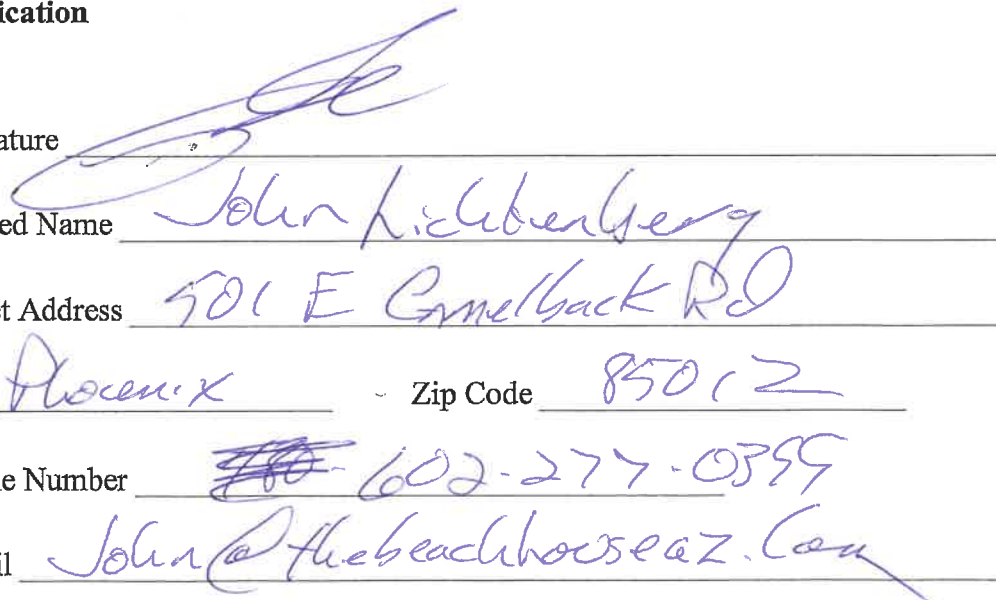 ication
ature
ed Name John Lichtenberg
et Address 501 E Camelback Rd
Phoenix Zip Code 85012
e Number 602-277-0399
il John@thebeachhouseaz.com